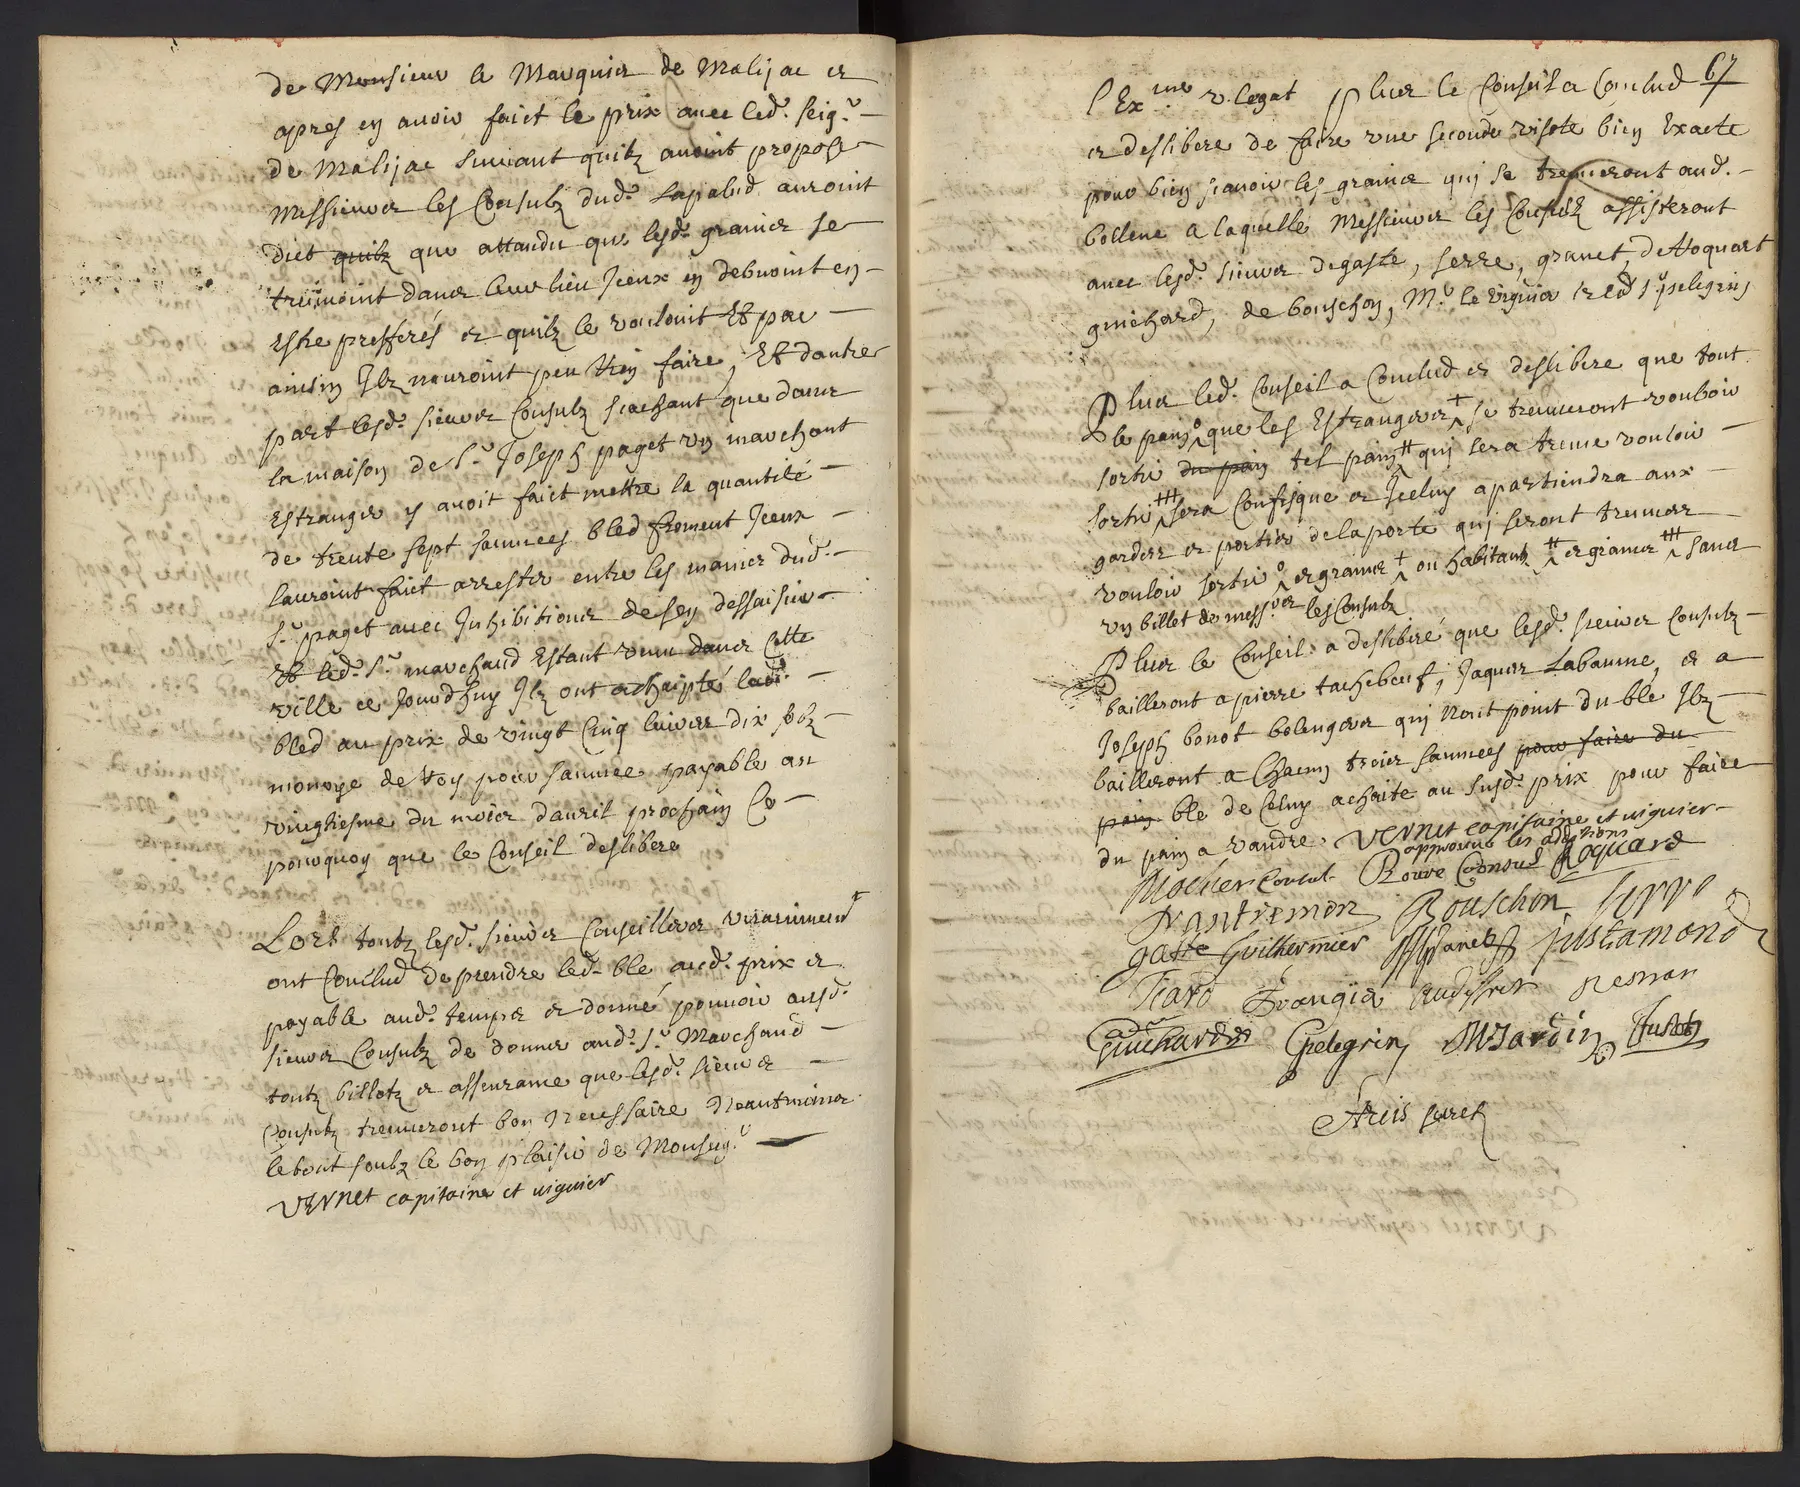 de Monsieur le Marquis de Malijac et
apres en avoir faict le prix avec led. seigr.
de Malijac suivant quilz avoint propose
Messieurs les Consulz dud. Lapalud auroint
dict quilz que attandu que lesd. grains se
treuvoint dans leur lieu Iceux en debvoint en
Estre prefferés et quilz le vouloint Et par
ainsin Ilz nauroint peu rien faire, Et dautre
part lesd. sieurs Consulz sachant que dans
la maison de Sr. Joseph paget un marchant
Estranger y avoit faict mettre la quantité
de trente sept saumees bled froment Iceux
lauroint faict arrester entre les mains dud.
Sr. paget avec Inhibitions de sen dessaisir
Et led. Sr. marchand Estant venu dans Cette
ville ce Jourdhuy Ilz ont achaipté led.
bled au prix de vingt Cinq livres dix solz
monoye de Roy pour saumee payable au
vingtiesme du mois dauril prochain Ce
pourquoy que le Conseil deslibere
Lors toutz lesd. sieurs Conseillers unanimement
ont Conclud de prendre led. ble aud. prix et
payable aud. temps et donné pouvoir ausd.
sieurs Consulz de donner aud. Sr. Marchand
toutz billetz et asseurance que lesd. sieurs
Consulz treuveront bon necessaire Neantmoins
le tout soubz le bon plaisir de Monseigr.
VERNEt capitaine et viguier
67
l'Exme. v. legat Plus le Conseil a Conclud
et deslibere de faire une seconde visite bien Exacte
pour bien scavoir les grains qui se treuveront aud.
bollene a laquelle Messieurs les Consulz assisteront
avec lesd. sieurs degaste, serre, granet, de Roquart
guichard, de bouschon, Mr. le viguier et led. Sr. pelegrin
Plus led. Conseil a Conclud et deslibere que tout
le pain o que les Estrangers + se treuveront vouloir
sortir du pain tel pain ++ qui sera treuve vouloir
sortir +++ sera Confisque et Iceluy apartiendra aux
gardes et portier de la porte qui seront treuves
vouloir sortir o et grains + ou habitants ++ et grains +++ sans
un billet de messrs. les Consulz
Plus le Conseil a desliberé que lesd. sieurs Consulz
bailleront a pierre tachebeuf, Jaques Labaume, et a
Joseph bonot bolengers qui nont point du blé Ilz
bailleront a Chacun trois saumees pour faire du
pain ble de Celuy achaite au susd. prix pour faire
du pain a vandre. VERNEt capitaine et viguier
approuve les additions
Rocher Consul Roure Consul Roquard
Dantremon Bouschon serre
gaste Guilhermier Granet Justamond
Icard
Guichard Pelegrin Jardin